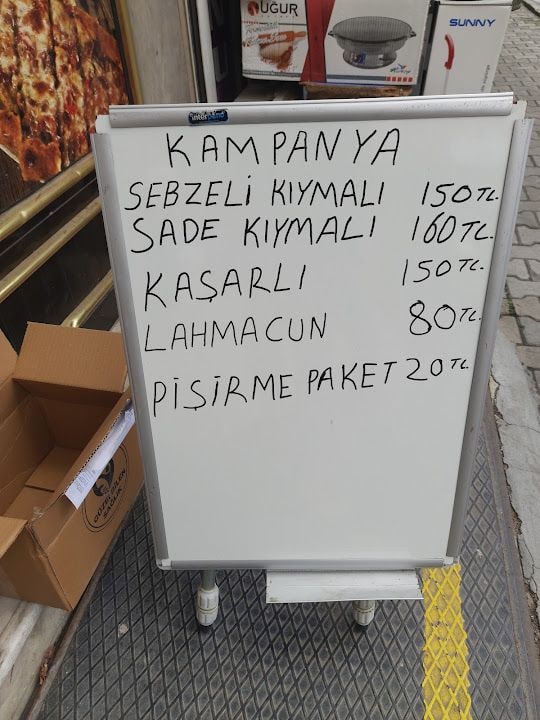 UĞUR
SUNNY
KAMPANYA
SEBZELİ KIYMALI 150 TL.
SADE KIYMALI 160 TL.
KAŞARLI 150 TL.
LAHMACUN 80 TL.
PİŞİRME PAKET 20 TL.
GÜZEL GİLEN